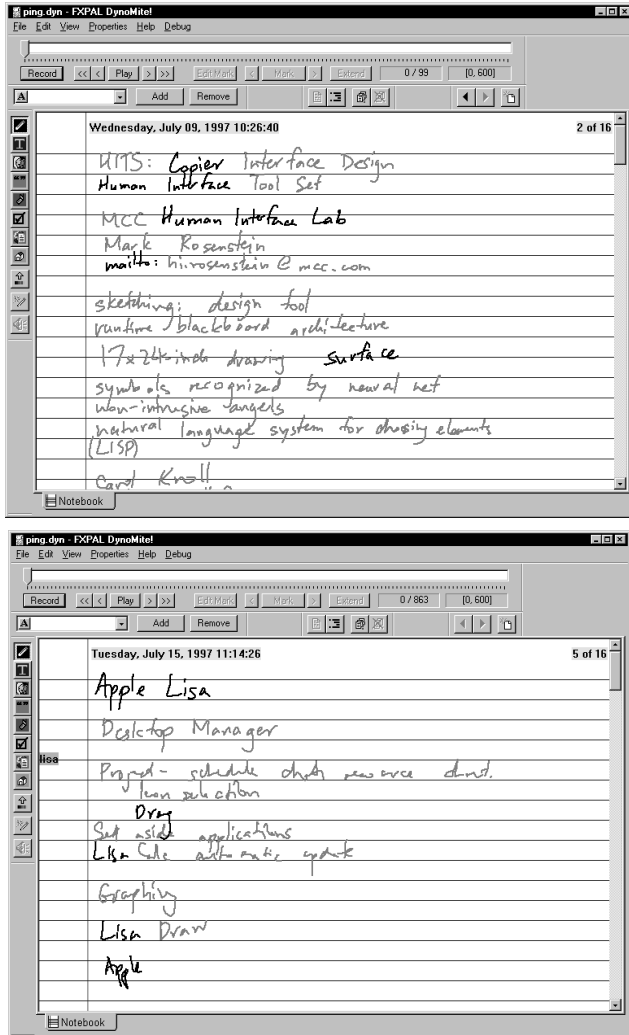 ping.dyn - FXPAL DynoMite!
File Edit View Properties Help Debug
Record << < Play > >> Edit Mark < Mark > Extend 0 / 99 [0, 600]
A Add Remove
Wednesday, July 09, 1997 10:26:40 2 of 16
HITS: Copier Interface Design
Human Interface Tool Set
MCC Human Interface Lab
Mark Rosenstein
mailto: hi.rosenstein@mcc.com
sketching: design tool
runtime/blackboard architecture
17x24-inch drawing surface
symbols recognized by neural net
non-intrusive
natural language system for elements
(LISP)
Carol Knoll
Notebook
ping.dyn - FXPAL DynoMite!
File Edit View Properties Help Debug
Record << < Play > >> Edit Mark < Mark > Extend 0 / 863 [0, 600]
A Add Remove
Tuesday, July 15, 1997 11:14:26 5 of 16
Apple Lisa
Desktop Manager
lisa
Project - schedule
icon selection
Drag
Set aside applications
Lisa Calc automatic update
Graphing
Lisa Draw
Apple
Notebook